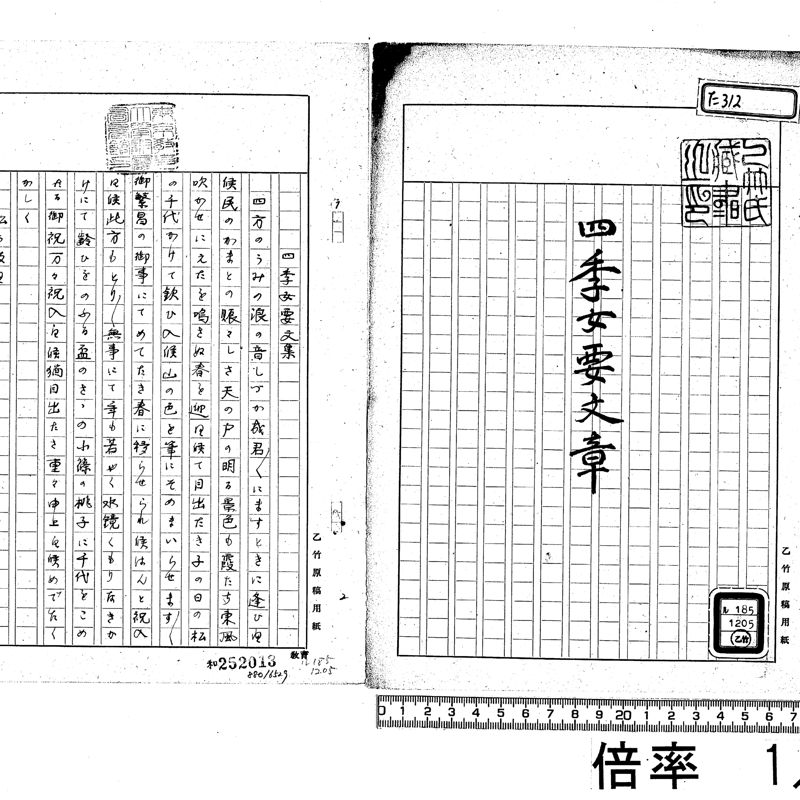 た312
乙竹氏
蔵書
四季女要文章
ル 185
1205
乙竹
乙竹原稿用紙
0 1 2 3 4 5 6 7 8 9 20 1 2 3 4 5 6 7
倍率 1
四季女要文集
四方のうみの浪の音しづか成君〱にますときに逢ひ候
候民のかまどの賑々しさ天の戸の明る景色も霞たち東風
吹かせにえたを鳴さぬ春を迎候て目出たき子の日の松
の千代かけて歓ひ入候山の色を筆にそめまいらせます〱
御繁昌の御事にてめてたき春に移らせられ候はんと祝入
候此方もとり〱無事にて年も若やく水鏡くもりなきか
けにて齢ひをのふる盃のさゝの小篠の桃子に千代をこめ
たる御祝万々祝入候猶目出たき重々申上候めでたく
かしく
2
乙竹原稿用紙
教育
和252013
880/6529
185
1205